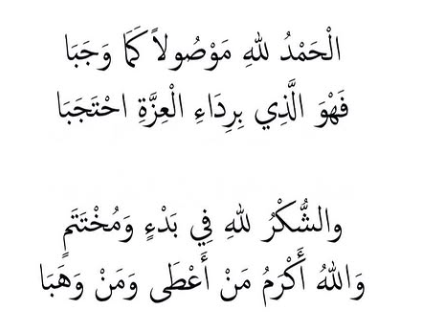 الْحَمْدُ للهِ مَوْصُولاً كَمَا وَجَبَا
فَهْوَ الَّذِي بِرِدَاءِ الْعِزَّةِ احْتَجَبَا
والشُّكْرُ للهِ فِي بَدْءٍ وَمُخْتَتَمٍ
وَاللهُ أَكْرَمُ مَنْ أَعْطَى وَمَنْ وَهَبَا